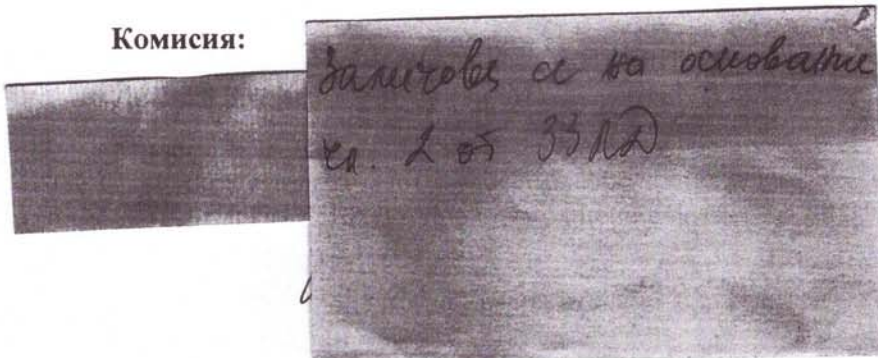 Комисия:
Заличава се на основание
чл. 2 от ЗЗЛД